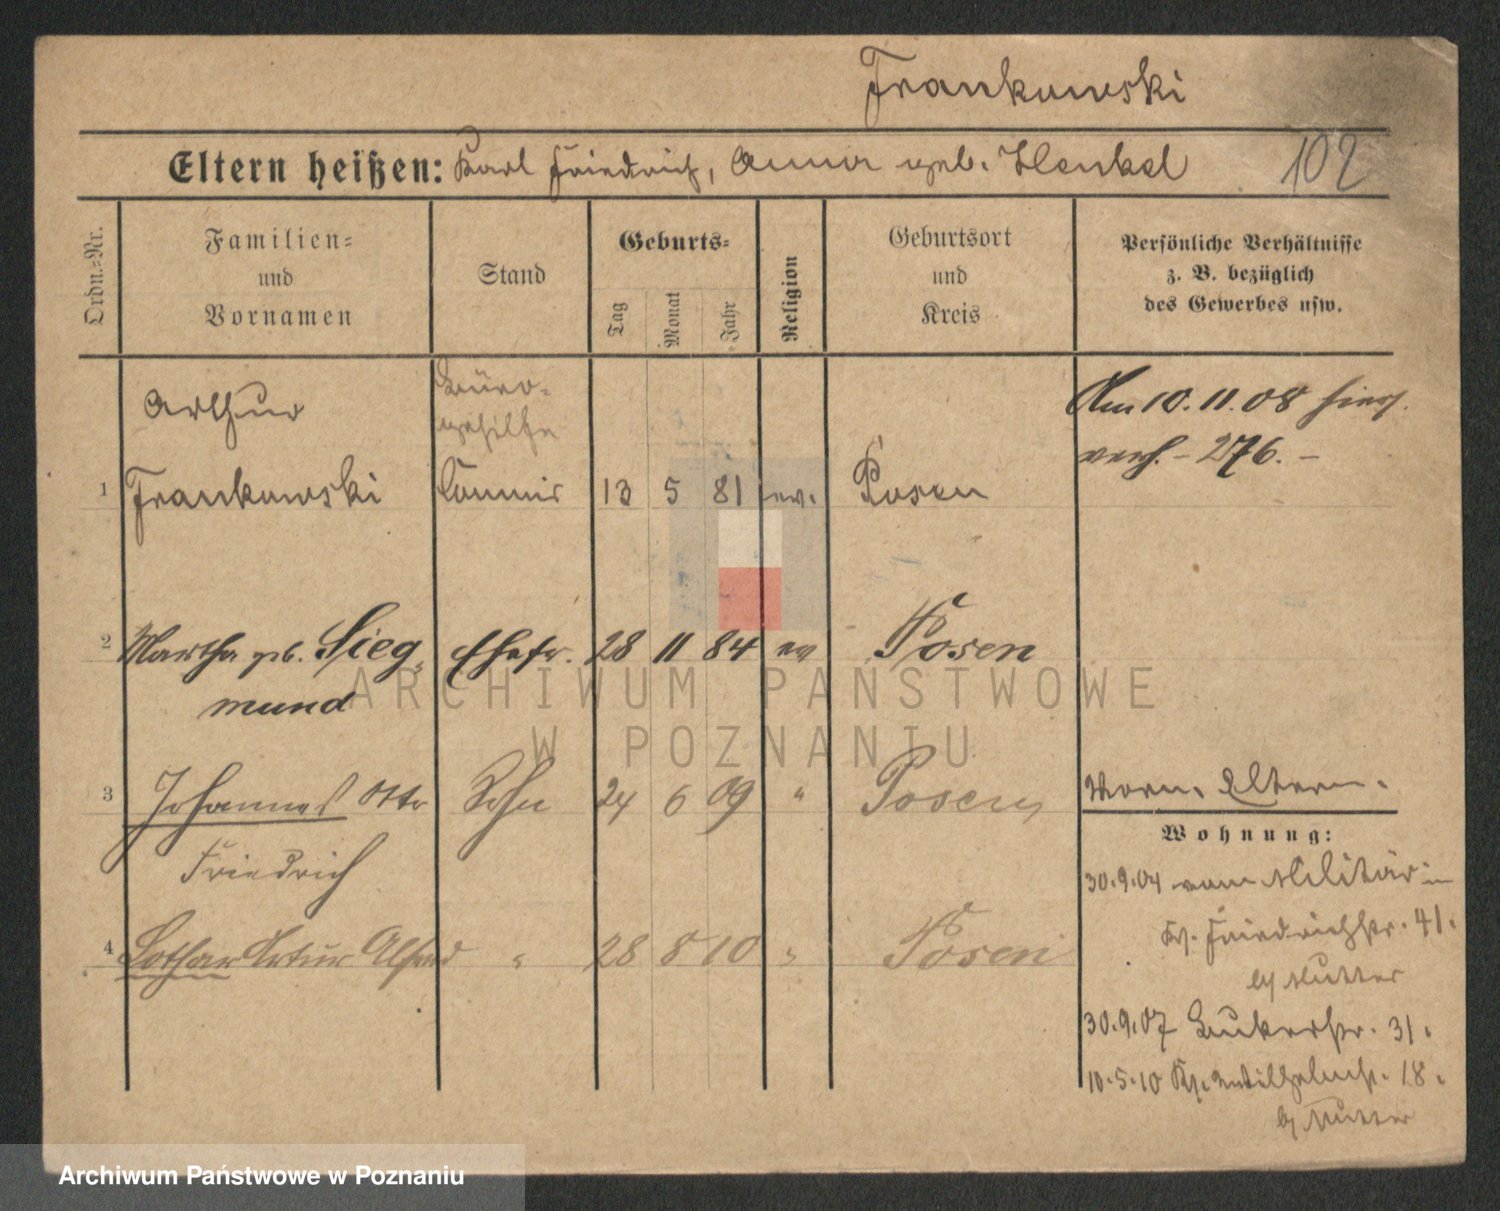 Frankowski
Eltern heißen: Karl Friedrich, Anna geb. Henkel 102
Ordn.=Nr.
Familien=
und
Vornamen
Stand
Geburts=
Tag
Monat
Jahr
Religion
Geburtsort
und
Kreis
Persönliche Verhältnisse
z. B. bezüglich
des Gewerbes usw.
Arthur Büro-
gehilfe
1 Frankowski Commis 13 5 81 ev. Posen
Am 10.11.08 hier
verh. - 276. -
2 Martha geb. Sieg- Ehefr. 28 11 84 ev Posen
mund
3 Johannes Otto Sohn 24 6 09 " Posen
Friedrich
4 Lothar Artur Alfred " 28 8 10 " Posen
Eltern.
Wohnung:
30.9.04 vom Militär in
Friedrichstr. 41.
Mutter
30.9.07 31.
10.5.10 18.
Mutter
ARCHIWUM PAŃSTWOWE
W POZNANIU
Archiwum Państwowe w Poznaniu